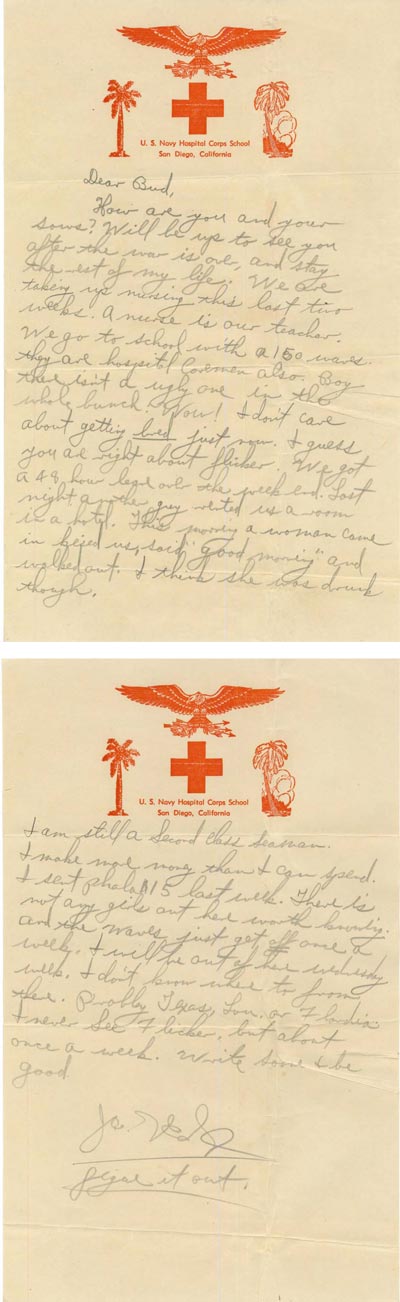 U. S. Navy Hospital Corps School
San Diego, California
Dear Bud,
How are you and your
sows? Will be up to see you
after the war is over, and stay
the rest of my life. We are
taking up nursing this last two
weeks. A nurse is our teacher.
We go to school with a 150 waves.
they are hospitl Coremen also. Boy
there isn't a ugly one in the
whole bunch. Wow! I don't care
about getting just now. I guess
you are right about flicker. We got
a 48 hour over the week end. Last
night another guy rented us a room
in a hotel. This morning a woman came
in us, said, "good morning" and
walked out. I think she was drunk
though.
U. S. Navy Hospital Corps School
San Diego, California
I am still a Second Class Seaman.
I make more money than I can spend.
I sent $15 last week. There is
not any girls out here worth knowing.
and the waves just get off once a
week. I will be out of here wednesday
week. I don't know where to from
there. Probbly Texas, or Flordia
I never See Flicker, but about
once a week. Write soone & be
good
it out.